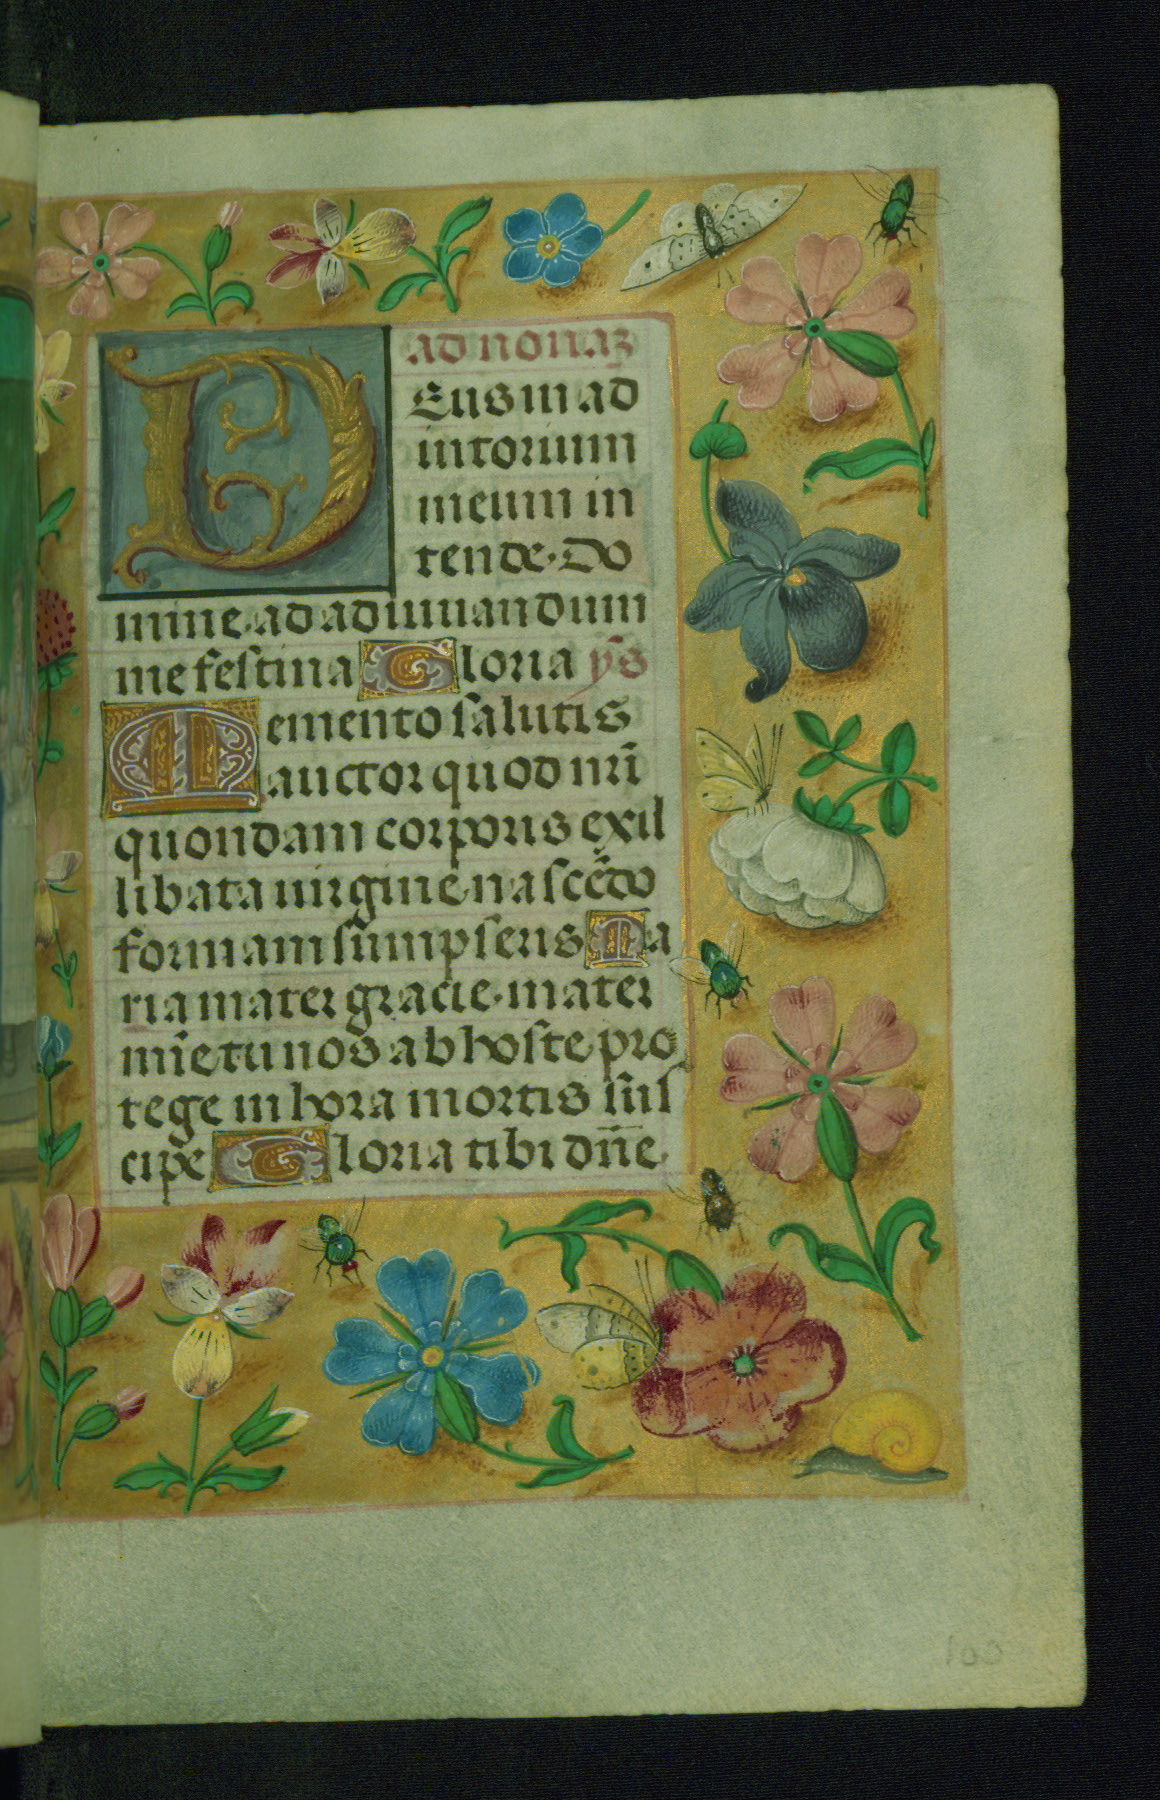 ad nonaz
Deus in ad
iutorium
meum in
tende. Do
mine ad adiuuandum
me festina Gloria ỹs
Memento salutis
auctor quod nrī
quondam corporis exil
libata uirgine nascēdo
formam sūmpseris Ma
ria mater gracie. mater
mīe tu nos ab hoste pro
tege in hora mortis sus
cipe Gloria tibi dn̄e.
100